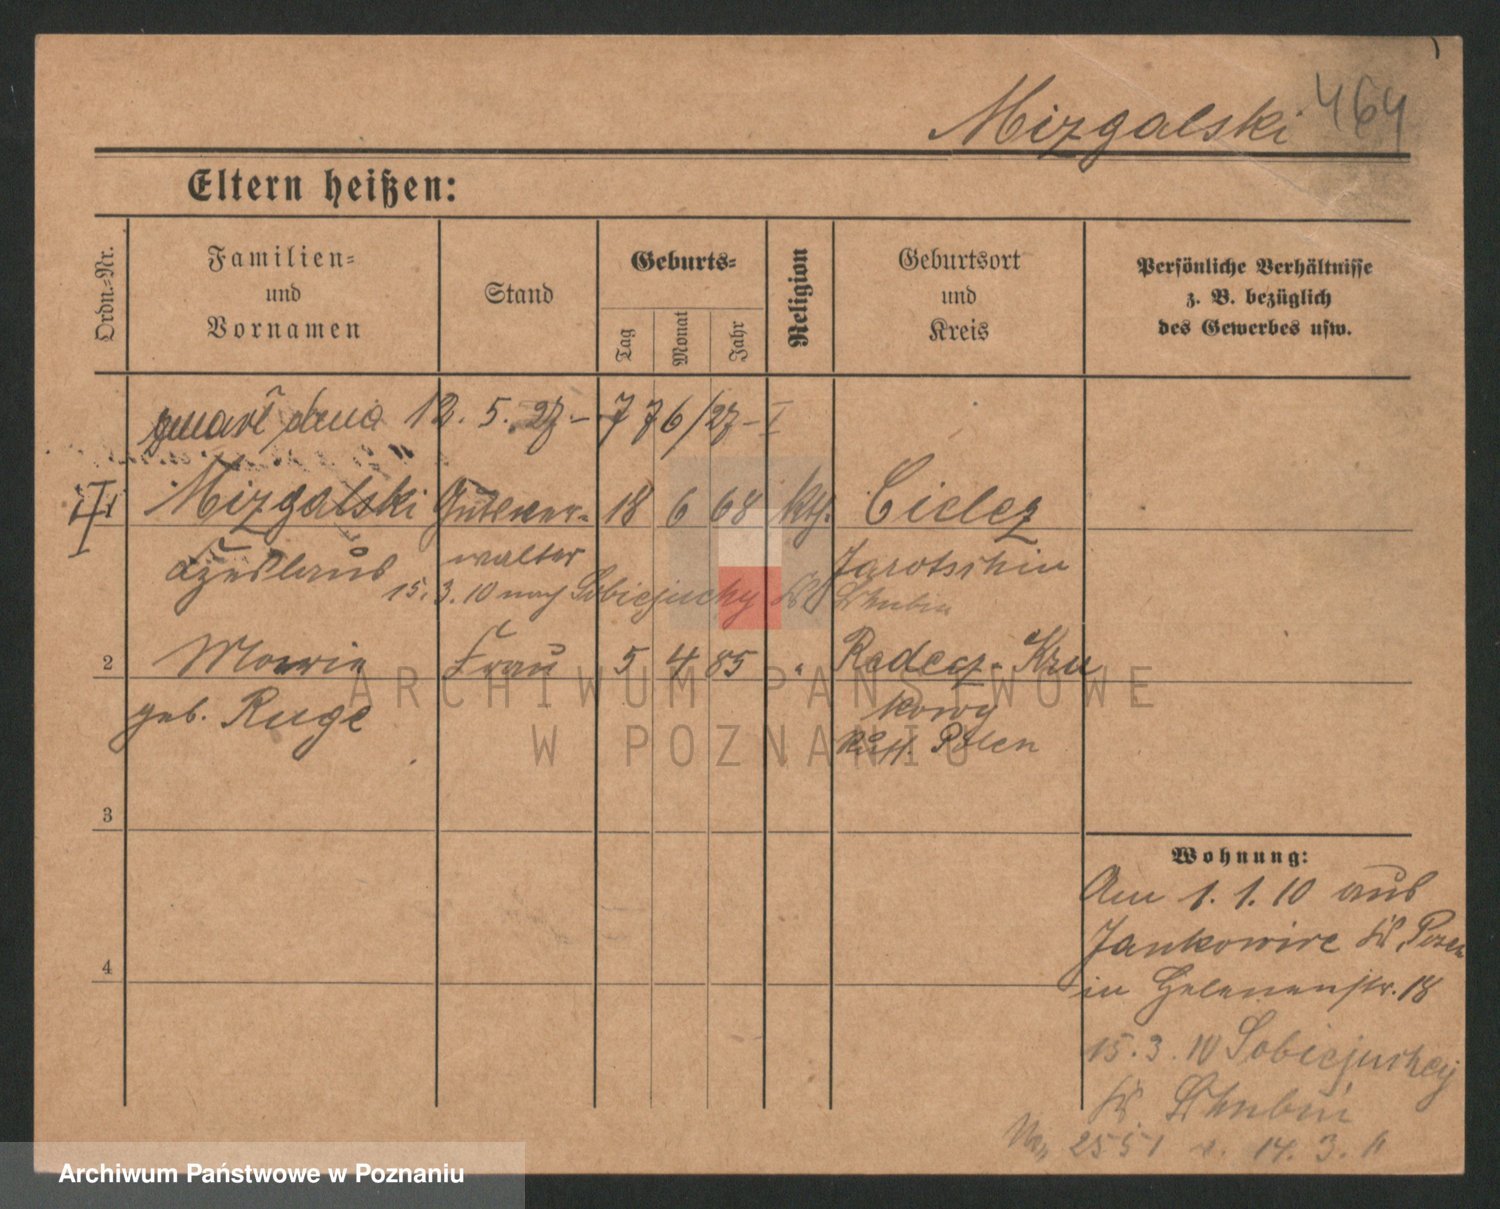 Mizgalski 464
Eltern heißen:
Ordn.-Nr.
Familien-
und
Vornamen
Stand
Geburts-
Tag
Monat
Jahr
Religion
Geburtsort
und
Kreis
Persönliche Verhältnisse
z. B. bezüglich
des Gewerbes usw.
zmarł dnia 12. 5. 27 – 7 7 6/27 – I
Mizgalski Gutsver- 18 6 68 kth. Cielcz
Czeslaus walter Jarotschin
15. 3. 10 nach Sobiejuchy Kr. Schubin
2 Marie Frau 5 4 85 " Radecz-Kru
geb. Ruge kowy
Russ. Polen
3
4
Wohnung:
Am 1. 1. 10 aus
Jankowice Kr. Posen
in Helenenstr. 18
15. 3. 10 Sobiejuchy
Kr. Schubin
2551 14. 3.
ARCHIWUM PAŃSTWOWE
W POZNANIU
Archiwum Państwowe w Poznaniu